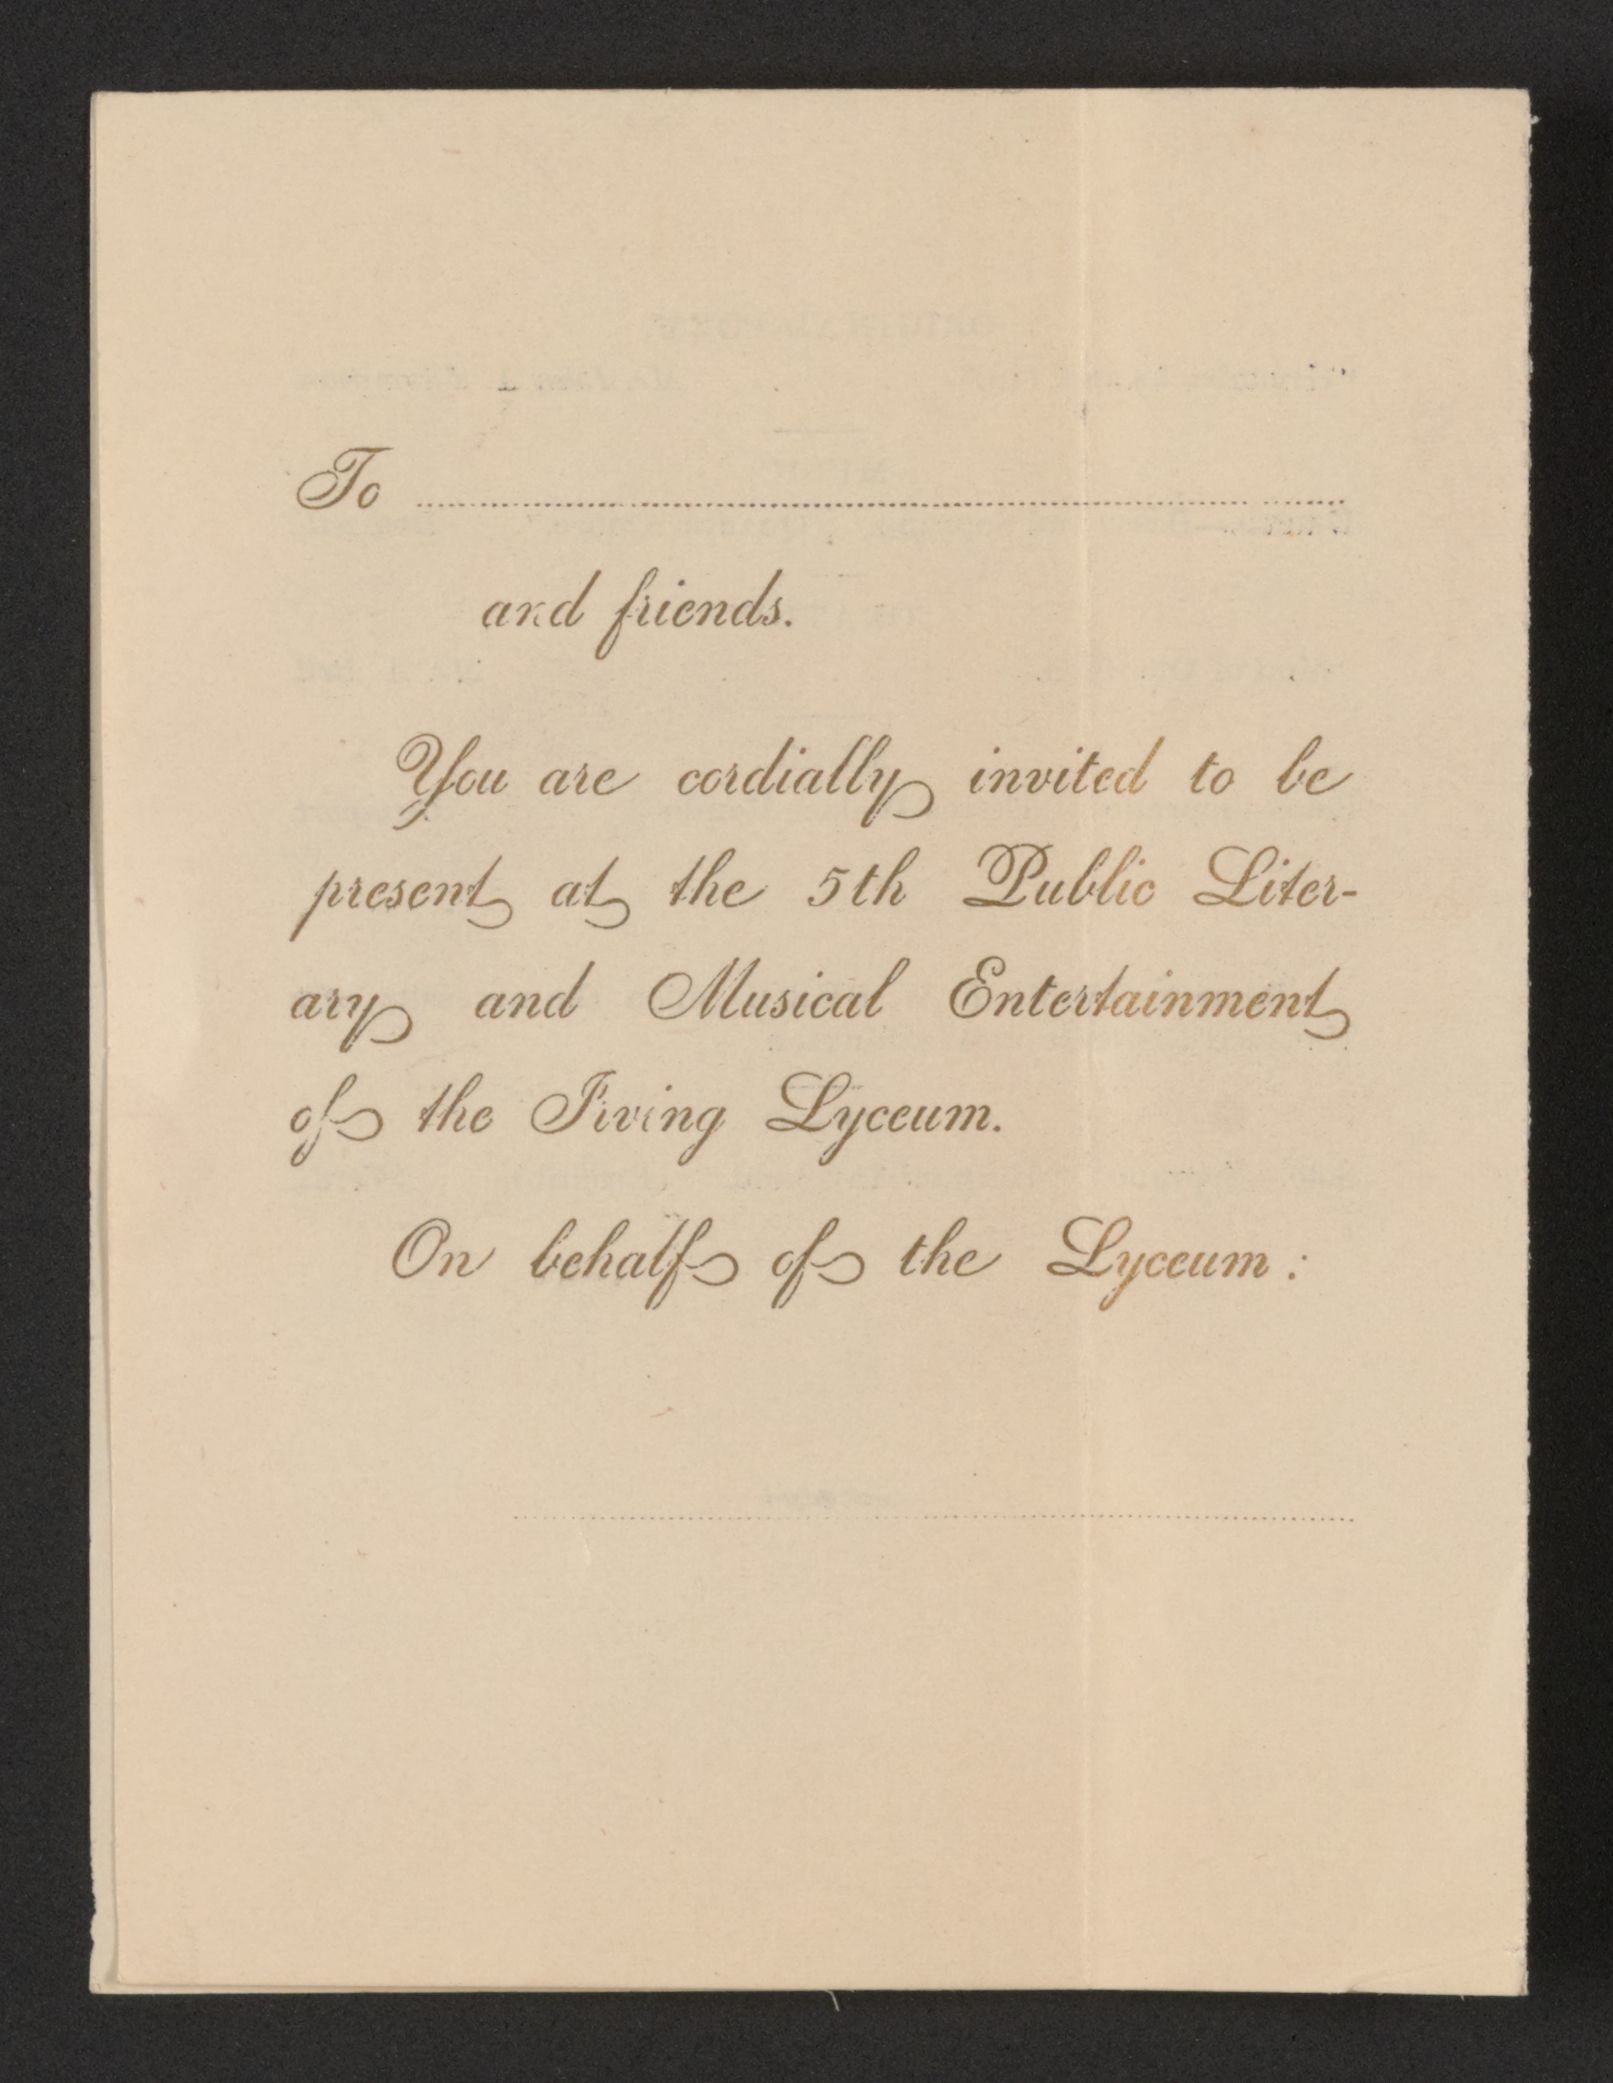 To ........................................
and friends.
You are cordially invited to be
present at the 5th Public Liter-
ary and Musical Entertainment
of the Irving Lyceum.
On behalf of the Lyceum :
........................................